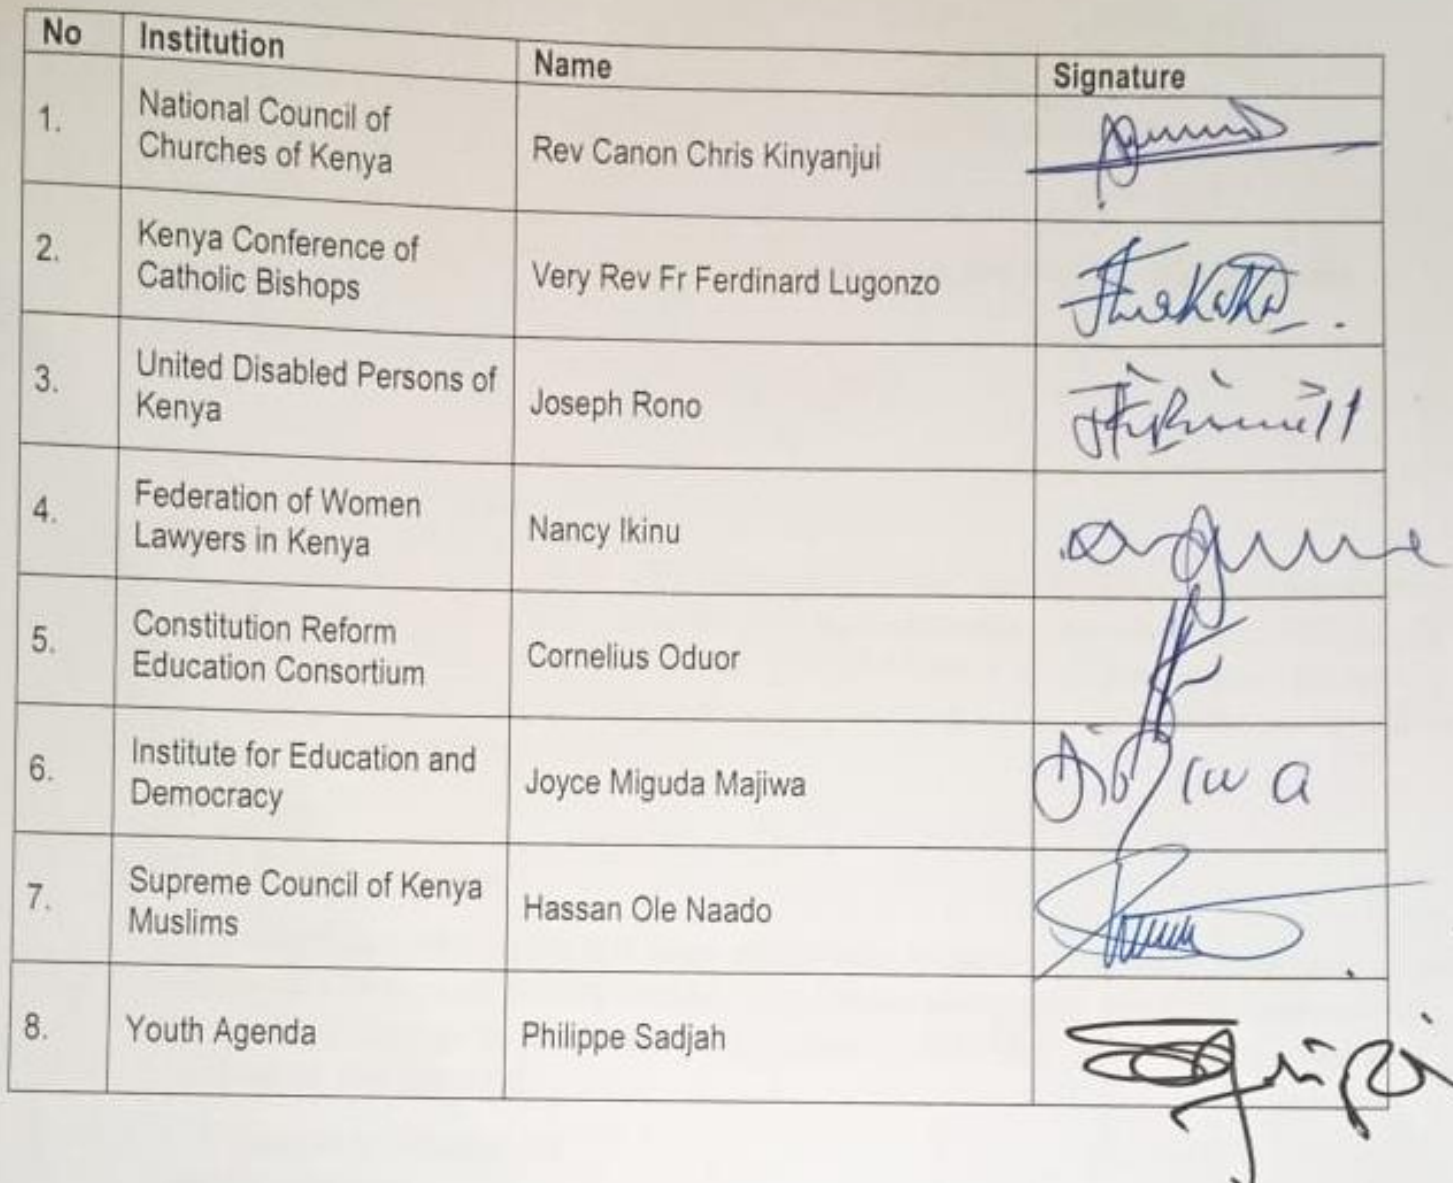 No Institution Name Signature
1. National Council of
Churches of Kenya Rev Canon Chris Kinyanjui
2. Kenya Conference of
Catholic Bishops Very Rev Fr Ferdinard Lugonzo
3. United Disabled Persons of
Kenya Joseph Rono
4. Federation of Women
Lawyers in Kenya Nancy Ikinu
5. Constitution Reform
Education Consortium Cornelius Oduor
6. Institute for Education and
Democracy Joyce Miguda Majiwa
7. Supreme Council of Kenya
Muslims Hassan Ole Naado
8. Youth Agenda Philippe Sadjah